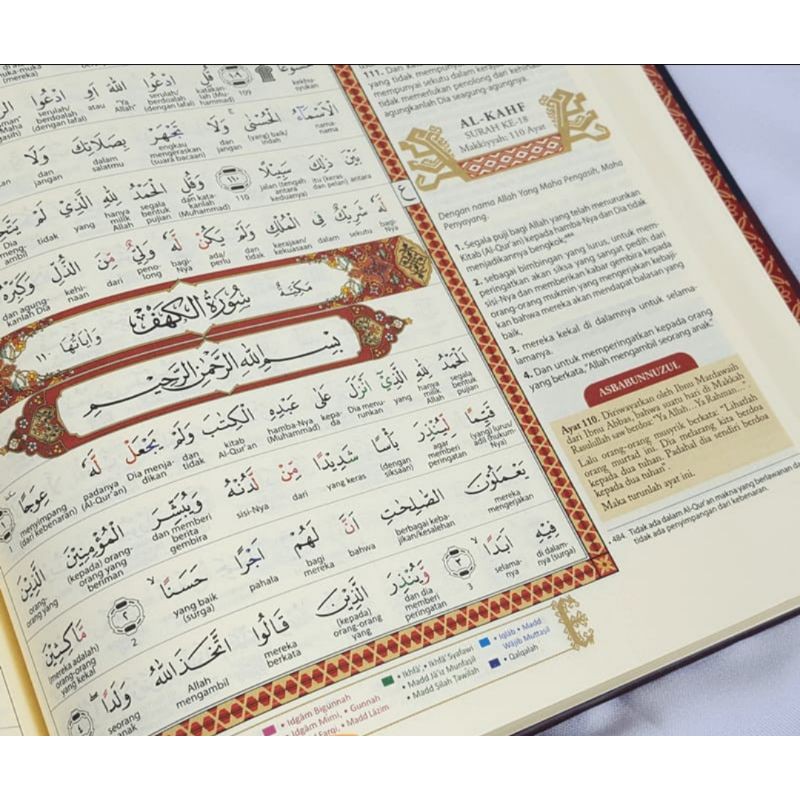 قُلِ ادْعُوا اللّٰهَ اَوِ ادْعُوا
١٠٩
109
katakanlah (Muhammad)
serulah/ berdoalah (dengan lafal)
"Ya Allah"
atau
serulah/ berdoalah (dengan lafal)
الْاَسْمَاۤءُ الْحُسْنٰى وَلَا تَجْهَرْ بِصَلَاتِكَ وَلَا
nama-nama
(yang) baik/ indah
dan jangan
engkau mengeraskan (suara bacaan)
dalam salatmu
dan jangan
بَيْنَ ذٰلِكَ سَبِيْلًا ١١٠ وَقُلِ الْحَمْدُ لِلّٰهِ الَّذِيْ لَمْ
antara keduanya)
itu (keras dan pelan)
jalan (tengah
110
dan katakanlah (Muhammad)
segala bentuk pujian
hanya milik Allah
yang
tidak
لَهٗ شَرِيْكٌ فِى الْمُلْكِ وَلَمْ يَكُنْ لَّهٗ وَلِيٌّ مِّنَ الذُّلِّ وَكَبِّرْهُ
bagi-Nya
sekutu
dalam
kerajaan/ kekuasaan
dan tidak
ada/ perlu
bagi-Nya
penolong
dari
kehinaan
dan agungkanlah Dia
مَكِّيَّةٌ
سُوْرَةُ الْكَهْفِ
وَاٰيَاتُهَا ١١٠
بِسْمِ اللّٰهِ الرَّحْمٰنِ الرَّحِيْمِ
اَلْحَمْدُ لِلّٰهِ الَّذِيْٓ اَنْزَلَ عَلٰى عَبْدِهِ الْكِتٰبَ وَلَمْ يَجْعَلْ لَّهٗ عِوَجًا
segala bentuk pujian
hanya milik Allah
yang
Dia menurunkan
kepada
hamba-Nya (Muhammad)
kitab Al-Qur'an
dan tidak
Dia menjadikan
padanya (Al-Qur'an)
menyimpang (dari kebenaran)
1
قَيِّمًا لِّيُنْذِرَ بَأْسًا شَدِيْدًا مِّنْ لَّدُنْهُ وَيُبَشِّرَ الْمُؤْمِنِيْنَ الَّذِيْنَ
(yang) lurus/ adil
agar memberi peringatan
(dengan) siksaan
yang keras
dari
sisi-Nya
dan memberi berita gembira
(kepada) orang-orang yang beriman
orang-orang yang
يَعْمَلُوْنَ الصّٰلِحٰتِ اَنَّ لَهُمْ اَجْرًا حَسَنًا ٢ مَّاكِثِيْنَ
mereka mengerjakan
berbagai kebajikan/kesalehan
bahwa
bagi mereka
pahala
yang baik (surga)
2
(mereka adalah) orang-orang yang kekal
فِيْهِ اَبَدًا ٣ وَّيُنْذِرَ الَّذِيْنَ قَالُوا اتَّخَذَ اللّٰهُ وَلَدًا ٤
di dalamnya (surga)
selamanya
3
dan dia memberi peringatan
(kepada) orang-orang yang
mereka berkata
Allah mengambil
seorang anak
Idgām Bigunnah
Idgām Mimi, • Gunnah
Farqi, • Madd Lāzim
• Ikhfā' • Ikhfā' Syafawi
• Madd Jā'iz Munfaṣil
• Madd Ṣilah Ṭawīlah
• Iqlāb • Madd
Wājib Muttaṣil
• Qalqalah
yang tidak mempunyai
mempunyai sekutu dalam kerajaan
memerlukan penolong dari kehinaan
agungkanlah Dia seagung-agungnya.
AL-KAHF
SURAH KE-18
Makkiyyah: 110 Ayat
Dengan nama Allah Yang Maha Pengasih, Maha
Penyayang.
1. Segala puji bagi Allah yang telah menurunkan
Kitab (Al-Qur'an) kepada hamba-Nya dan Dia tidak
menjadikannya bengkok;
2. sebagai bimbingan yang lurus, untuk mem-
peringatkan akan siksa yang sangat pedih dari
sisi-Nya dan memberikan kabar gembira kepada
orang-orang mukmin yang mengerjakan kebaji-
kan bahwa mereka akan mendapat balasan yang
3. mereka kekal di dalamnya untuk selama-
lamanya.
4. Dan untuk memperingatkan kepada orang
yang berkata, "Allah mengambil seorang anak"
ASBABUNNUZUL
Ayat 110. Diriwayatkan oleh Ibnu Mardawaih
dari Ibnu Abbas, bahwa suatu hari di Makkah,
Rasulullah saw berdoa: "Ya Allah... Ya Rahman..."
Lalu orang-orang musyrik berkata: "Lihatlah
orang murtad ini. Dia melarang kita berdoa
kepada dua tuhan. Padahal dia sendiri berdoa
kepada dua tuhan".
Maka turunlah ayat ini.
• 484. Tidak ada dalam Al-Qur'an makna yang berlawanan
tidak ada penyimpangan dari kebenaran.